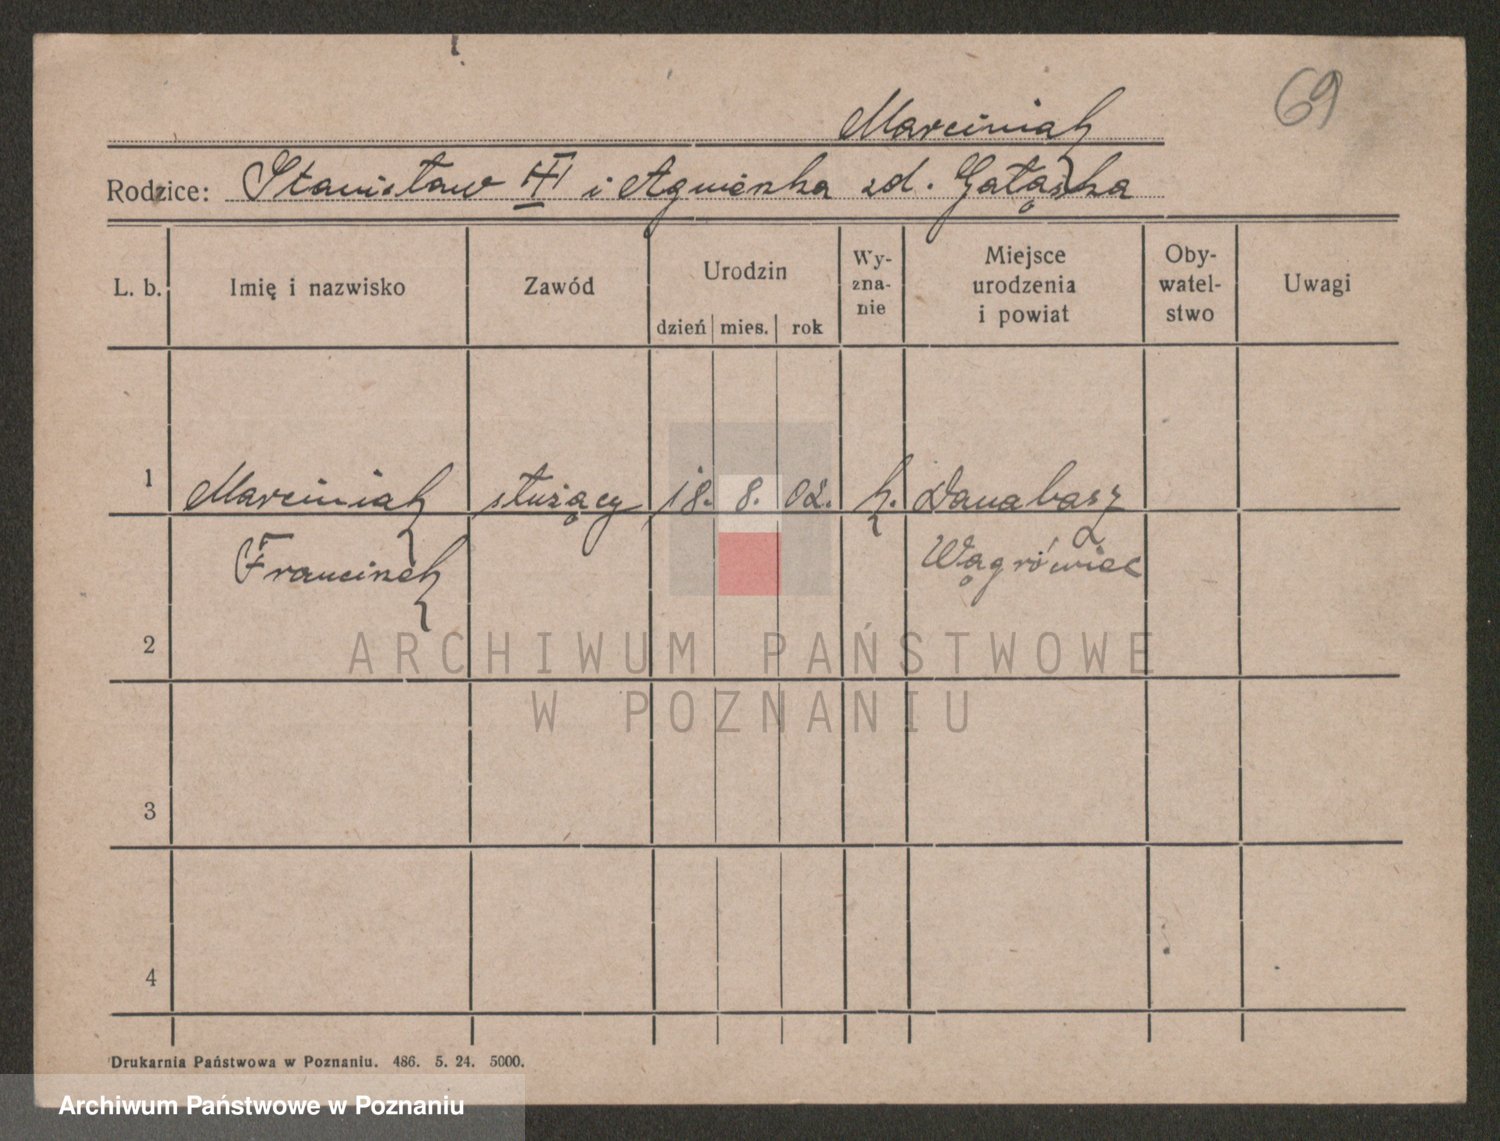 69
Marciniak
Rodzice: Stanisław III i Agnieszka zd. Gałązka
L. b.
Imię i nazwisko
Zawód
Urodzin
dzień mies. rok
Wy-
zna-
nie
Miejsce
urodzenia
i powiat
Oby-
watel-
stwo
Uwagi
1 Marciniak służący 18. 8. 02. k. Danabasz
Franciszek Wągrówiec
2
3
4
Drukarnia Państwowa w Poznaniu. 486. 5. 24. 5000.
ARCHIWUM PAŃSTWOWE
W POZNANIU
Archiwum Państwowe w Poznaniu